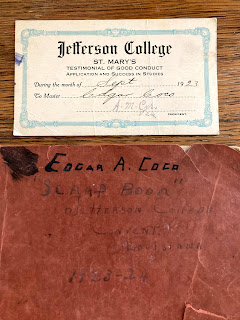 Jefferson College
ST. MARY'S
TESTIMONIAL OF GOOD CONDUCT
APPLICATION AND SUCCESS IN STUDIES
During the month of Sept 1923
To Master Edgar Coco
PRESIDENT
EDGAR A. COCO
"SCRAP BOOK"
JEFFERSON COLLEGE
CONVENT
LOUISIANA
1923-24